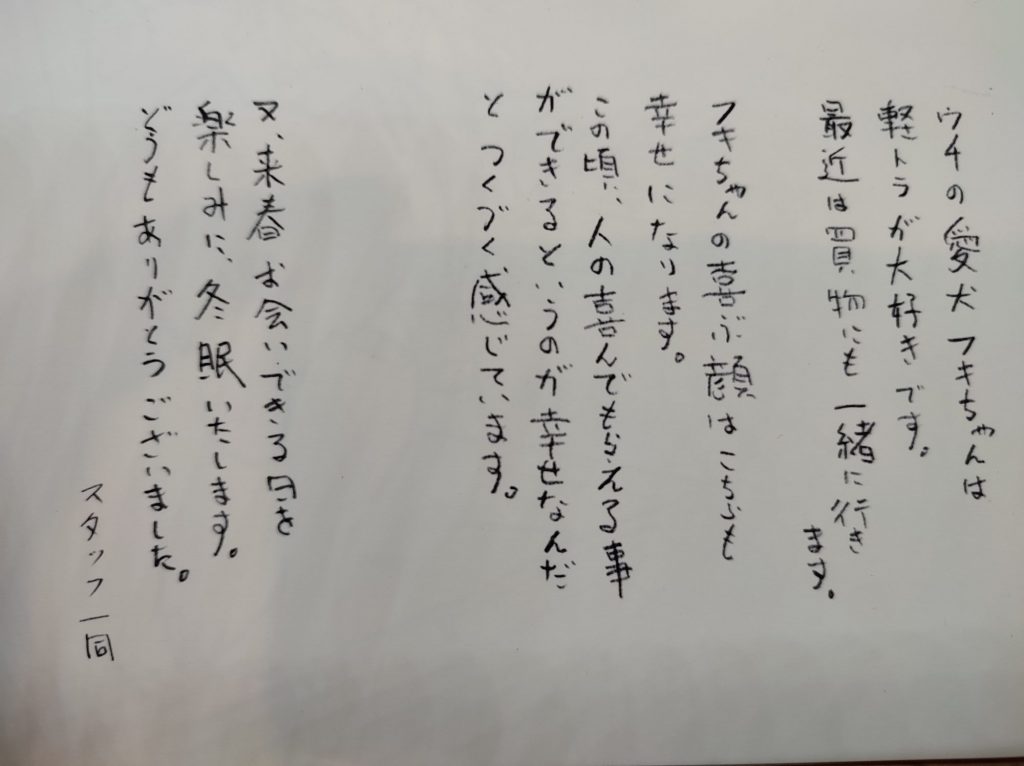 ウチの愛犬フキちゃんは
軽トラが大好きです。
最近は買物にも一緒に行き
ます。
フキちゃんの喜ぶ顔はこちらも
幸せになります。
この頃、人の喜んでもらえる事
ができるというのが幸せなんだ
とつくづく感じています。
又、来春お会いできる日を
楽しみに、冬眠いたします。
どうもありがとうございました。
スタッフ一同